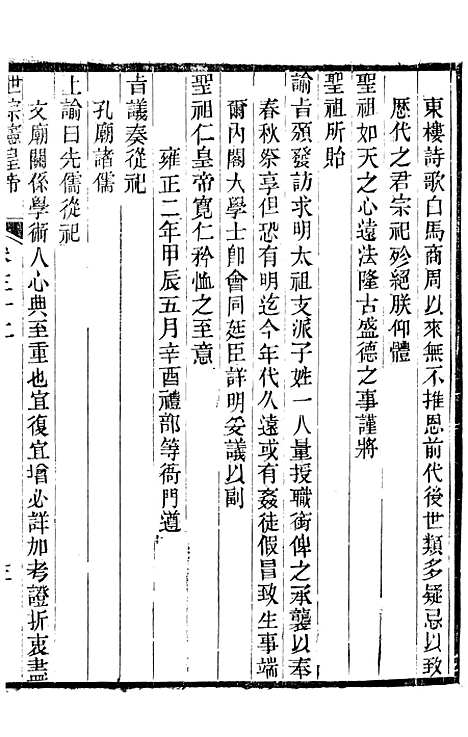 東樓詩歌白馬商周以來無不推恩前代後世類多疑忌以致
歷代之君宗祀殄絕朕仰體
聖祖如天之心遠法隆古盛德之事謹將
聖祖所貽
諭旨頒發訪求明太祖支派子姓一人量授職銜俾之承襲以奉
春秋祭享但恐有明迄今年代久遠或有姦徒假冒致生事端
爾內閣大學士卽會同廷臣詳明妥議以副
聖祖仁皇帝寬仁矜恤之至意
雍正二年甲辰五月辛酉禮部等衙門遵
旨議奏從祀
孔廟諸儒
上諭曰先儒從祀
文廟關係學術人心典至重也宜復宜增必詳加考證折衷盡
世宗憲皇帝